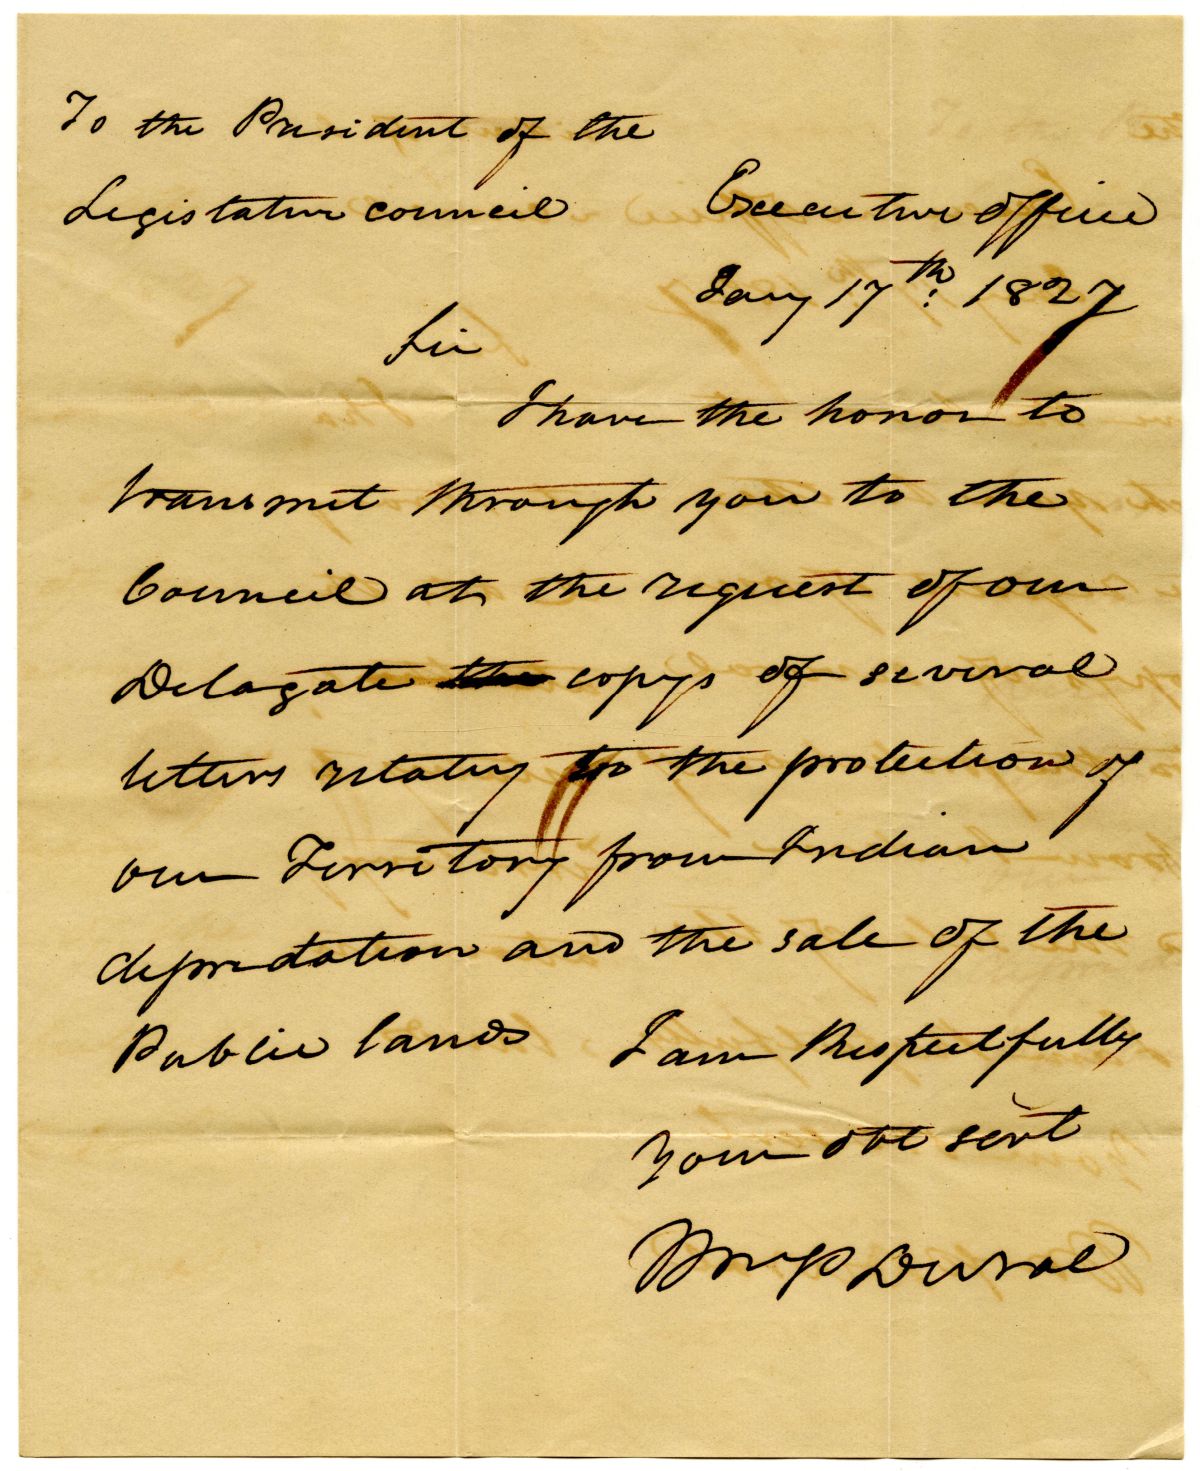 To the President of the
Legislative council
Executive office
Jany 17th: 1827
Sir
I have the honor to
transmit through you to the
Council at the request of our
Delagate the copys of several
letters relating to the protection of
our Territory from Indian
depredation and the sale of the
Public lands
I am Respectfully
your obt servt
Wm P Duval